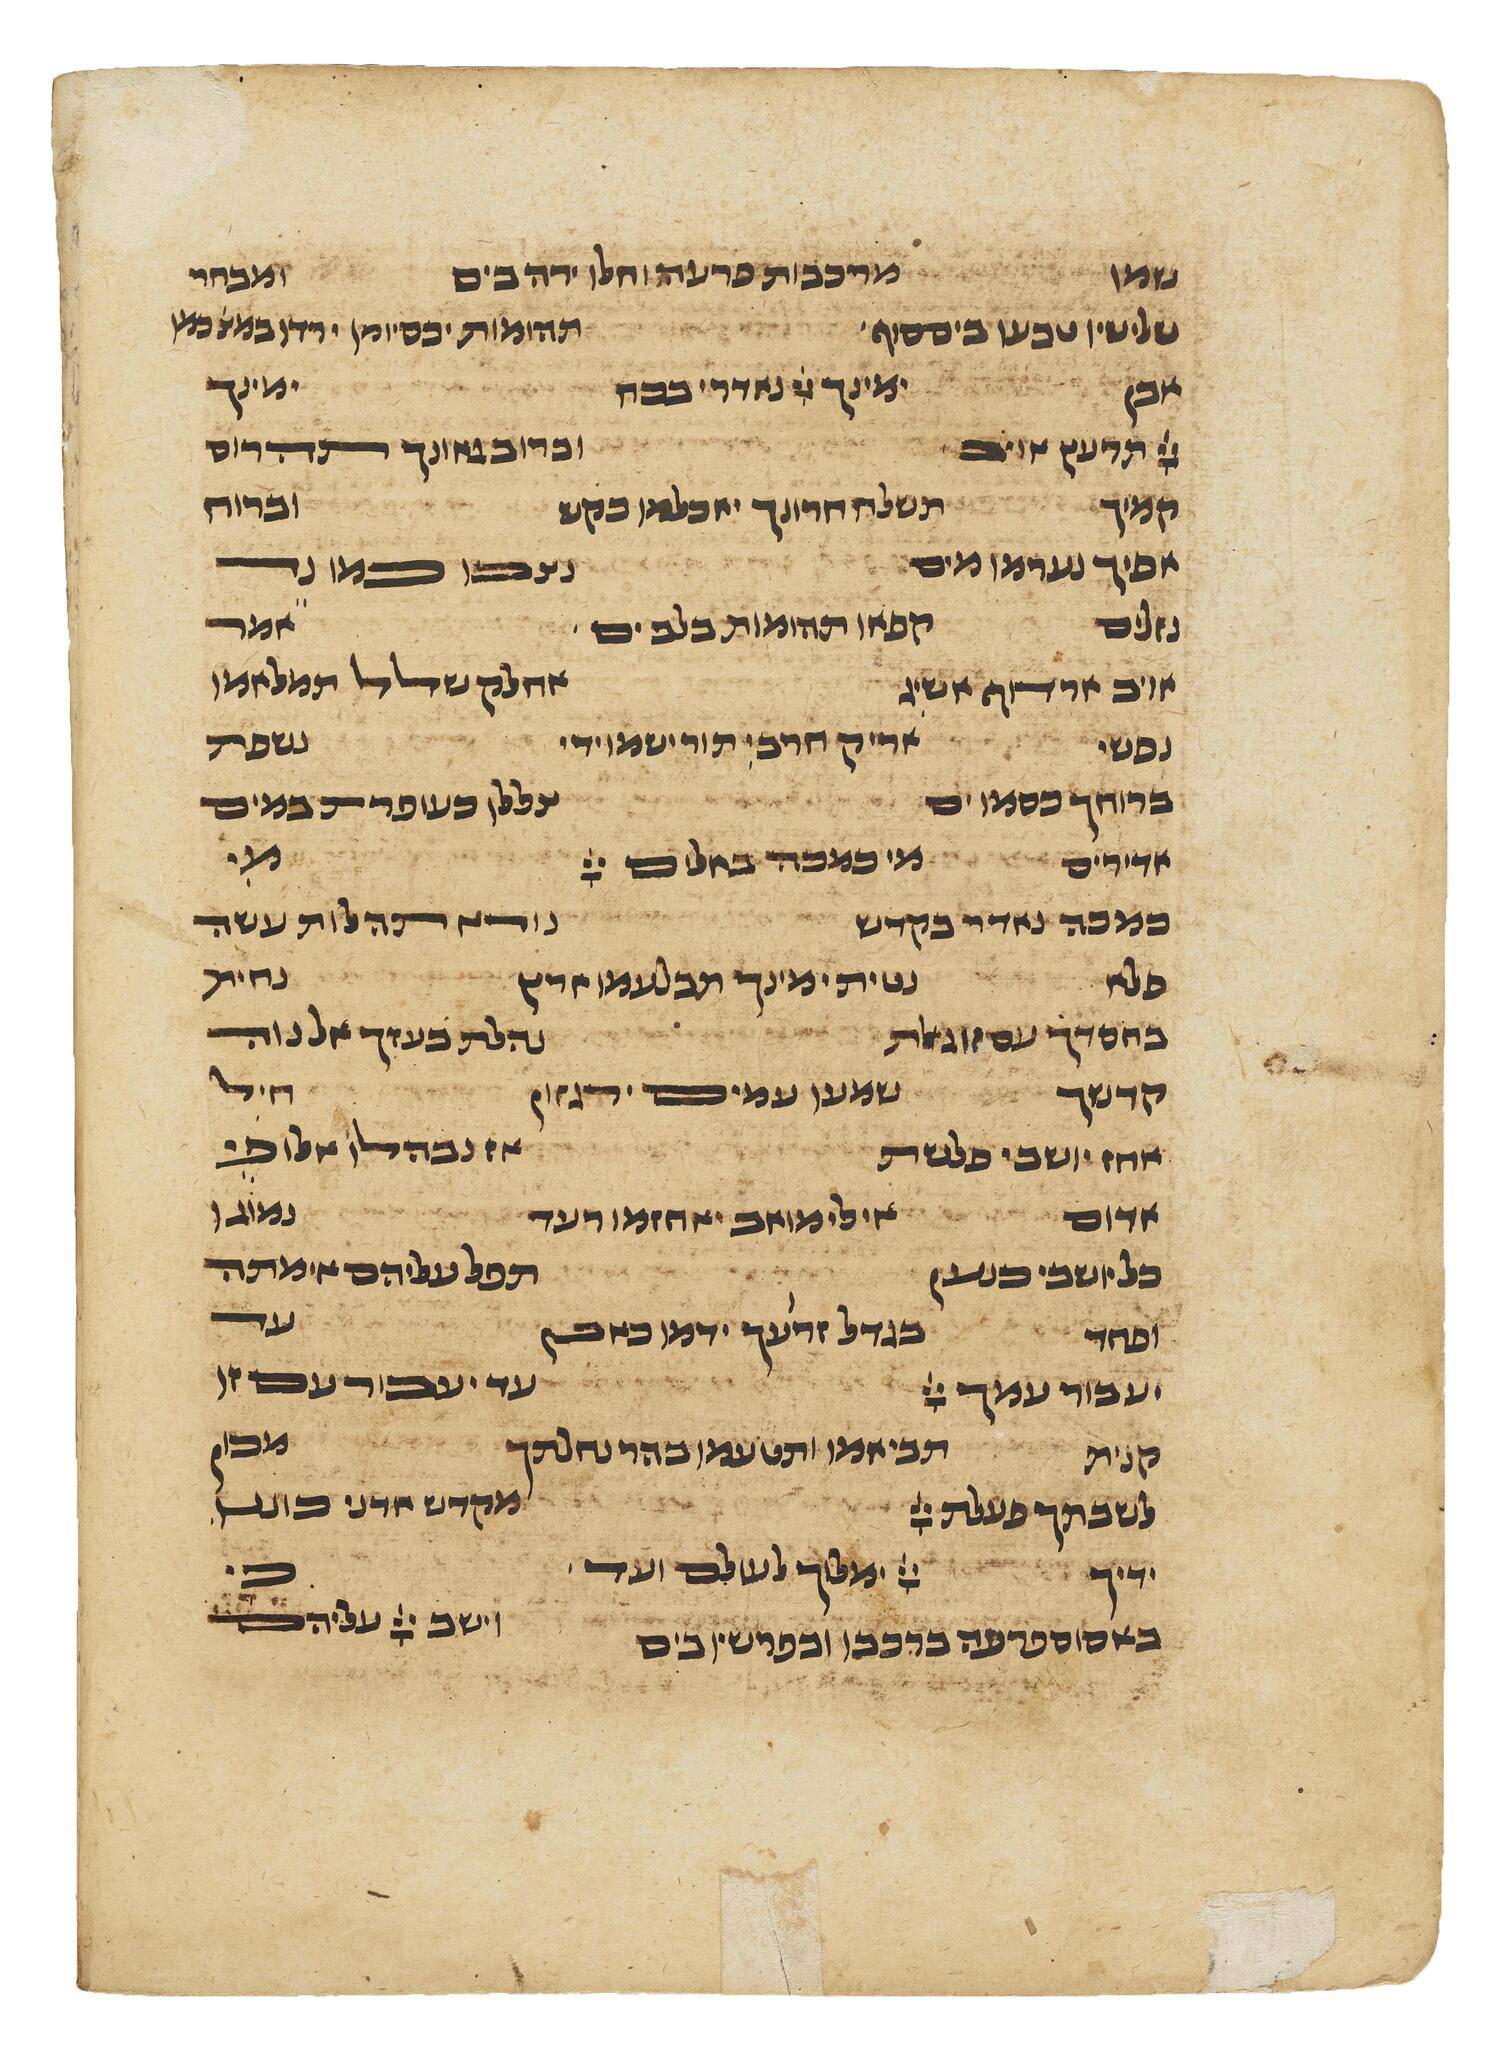 שמו מרכבות פרעה וחלו ירה בים ומבחר
שלישיו טבעו ביםסוף תהומות יכסיומו ירדו במצ כמו
אבן ימינך ייי נאדרי בכח ימינך
ייי תרעץ אויב וברוב גאונך תהרוס
קמיך תשלח חרונך יאכלמו כקש וברוח
אפיך נערמו מים נצבו כמו נד
נזלים קפאו תהומות בלב ים אמר
אויב ארדוף אשיג אחלק שלל תמלאמו
נפשי אריק חרבי תורישמו ידי נשפת
ברוחך כסמו ים צללו כעופרת במים
אדירים מי כמכה באלים ייי מי
כמכה נאדר בקדש נורא תהלות עשה
פלא נטית ימינך תבלעמו ארץ נחית
בחסדך עם זו גאלת נהלת בעזך אל נוה
קדשך שמעו עמים ירגזון חיל
אחז יושבי פלשת אז נבהלו אלופי
אדום אילי מואב יאחזמו רעד נמוגו
כל יושבי כנען תפל עליהם אימתה
ופחד בגדל זרועך ידמו כאבן עד
יעבור עמך ייי עד יעבור עם זו
קנית תביאמו ותטעמו בהר נחלתך מכון
לשבתך פעלת ייי מקדש אדני כוננו
ידיך ייי ימלך לעולם ועד כי
בא סוס פרעה ברכבו ובפרשיו בים וישב ייי עליהם